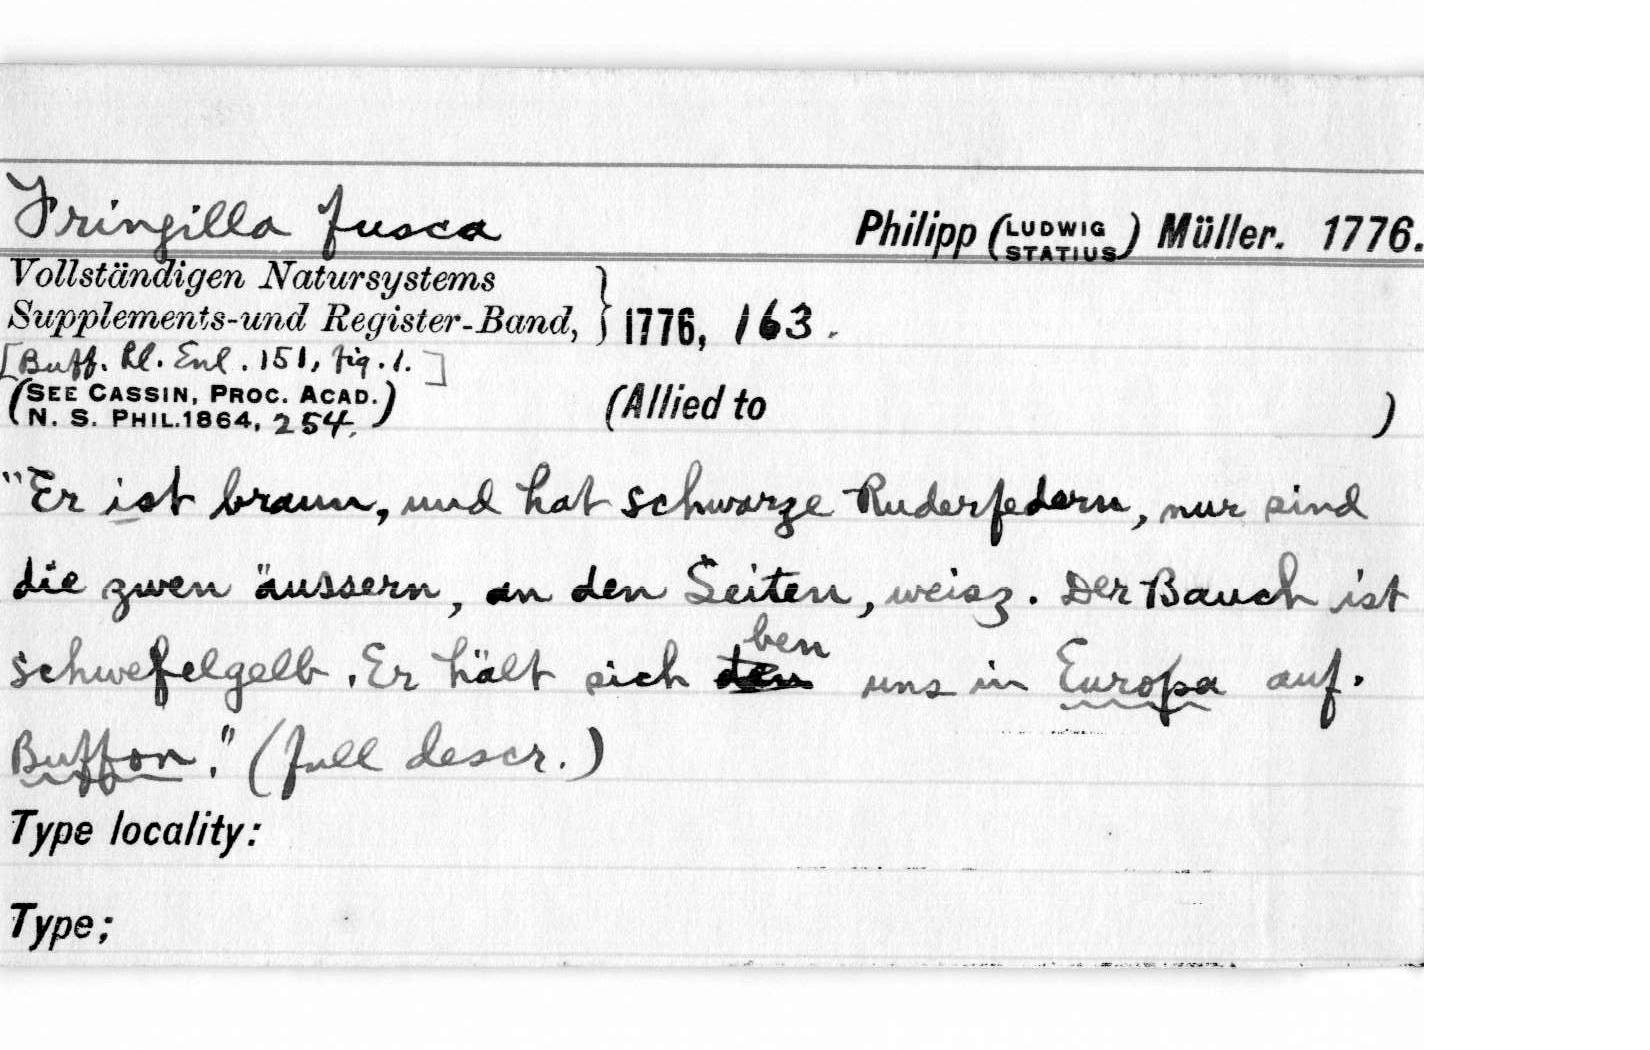 Fringilla fusca Philipp (LUDWIG STATIUS) Müller. 1776.
Vollständigen Natursystems
Supplements-und Register-Band, } 1776, 163.
[Buff. Pl. Enl. 151, fig. 1.]
(SEE CASSIN, PROC. ACAD.
N. S. PHIL. 1864, 254.) (Allied to )
"Er ist braun, und hat schwarze Ruderfedern, nur sind
die zwen äussern, an den Seiten, weisz. Der Bauch ist
schwefelgelb. Er hält sich den ben uns in Europa auf.
Buffon." (full descr.)
Type locality:
Type;